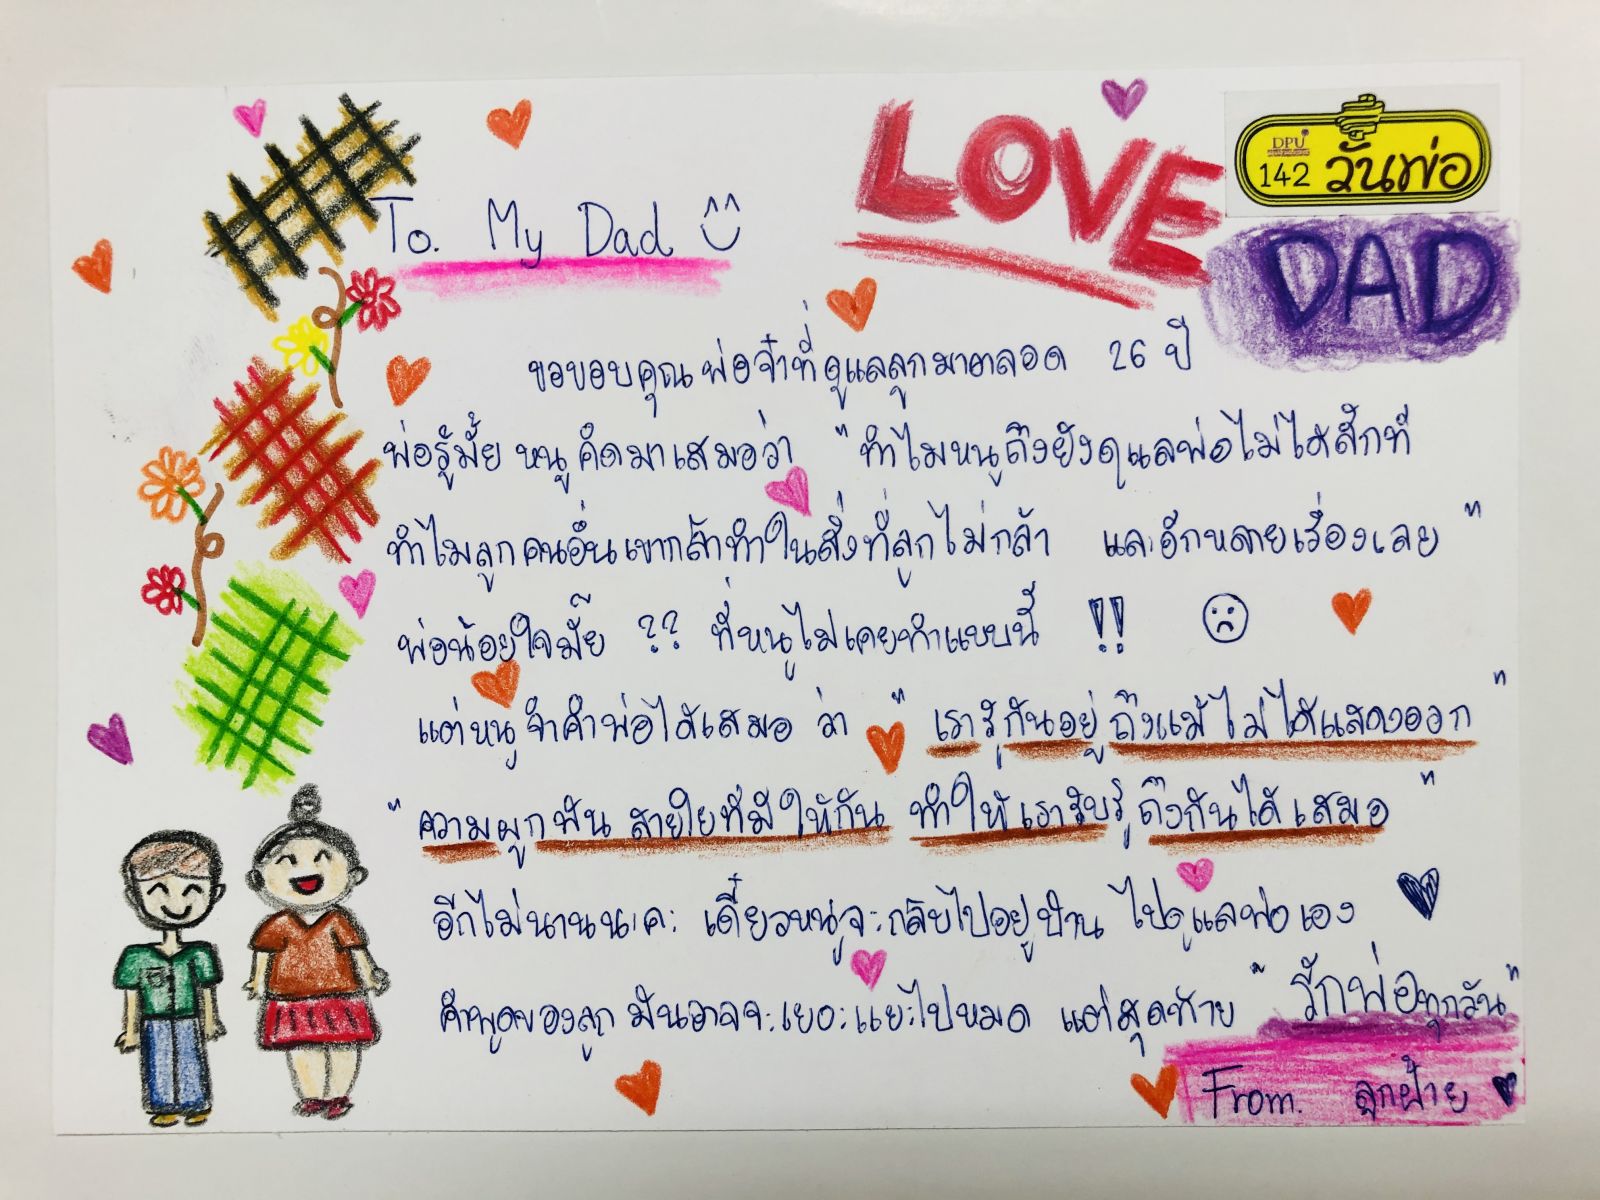 To. My Dad
LOVE
DPU
142 วันพ่อ
DAD
ขอขอบคุณพ่อจ๋าที่ดูแลลูกมาตลอด 26 ปี
พ่อรู้มั้ย หนูคิดมาเสมอว่า " ทำไมหนูถึงยังดูแลพ่อไม่ได้สักที
ทำไมลูกคนอื่นเขากล้าทำในสิ่งที่ลูกไม่กล้า และอีกหลายเรื่องเลย "
พ่อน้อยใจมั๊ย ?? ที่หนูไม่เคยทำแบบนี้ !!
แต่หนูจำคำพ่อได้เสมอ ว่า " เรารู้กันอยู่ถึงแม้ไม่ได้แสดงออก "
" ความผูกพัน สายใยที่มีให้กัน ทำให้เรารับรู้ถึงกันได้เสมอ "
อีกไม่นานนะคะ เดี๋ยวหนูจะกลับไปอยู่บ้าน ไปดูแลพ่อเอง
คำพูดของลูก มันอาจจะเยอะแยะไปหมด แต่สุดท้าย " รักพ่อทุกวัน "
From. ลูกฝ้าย